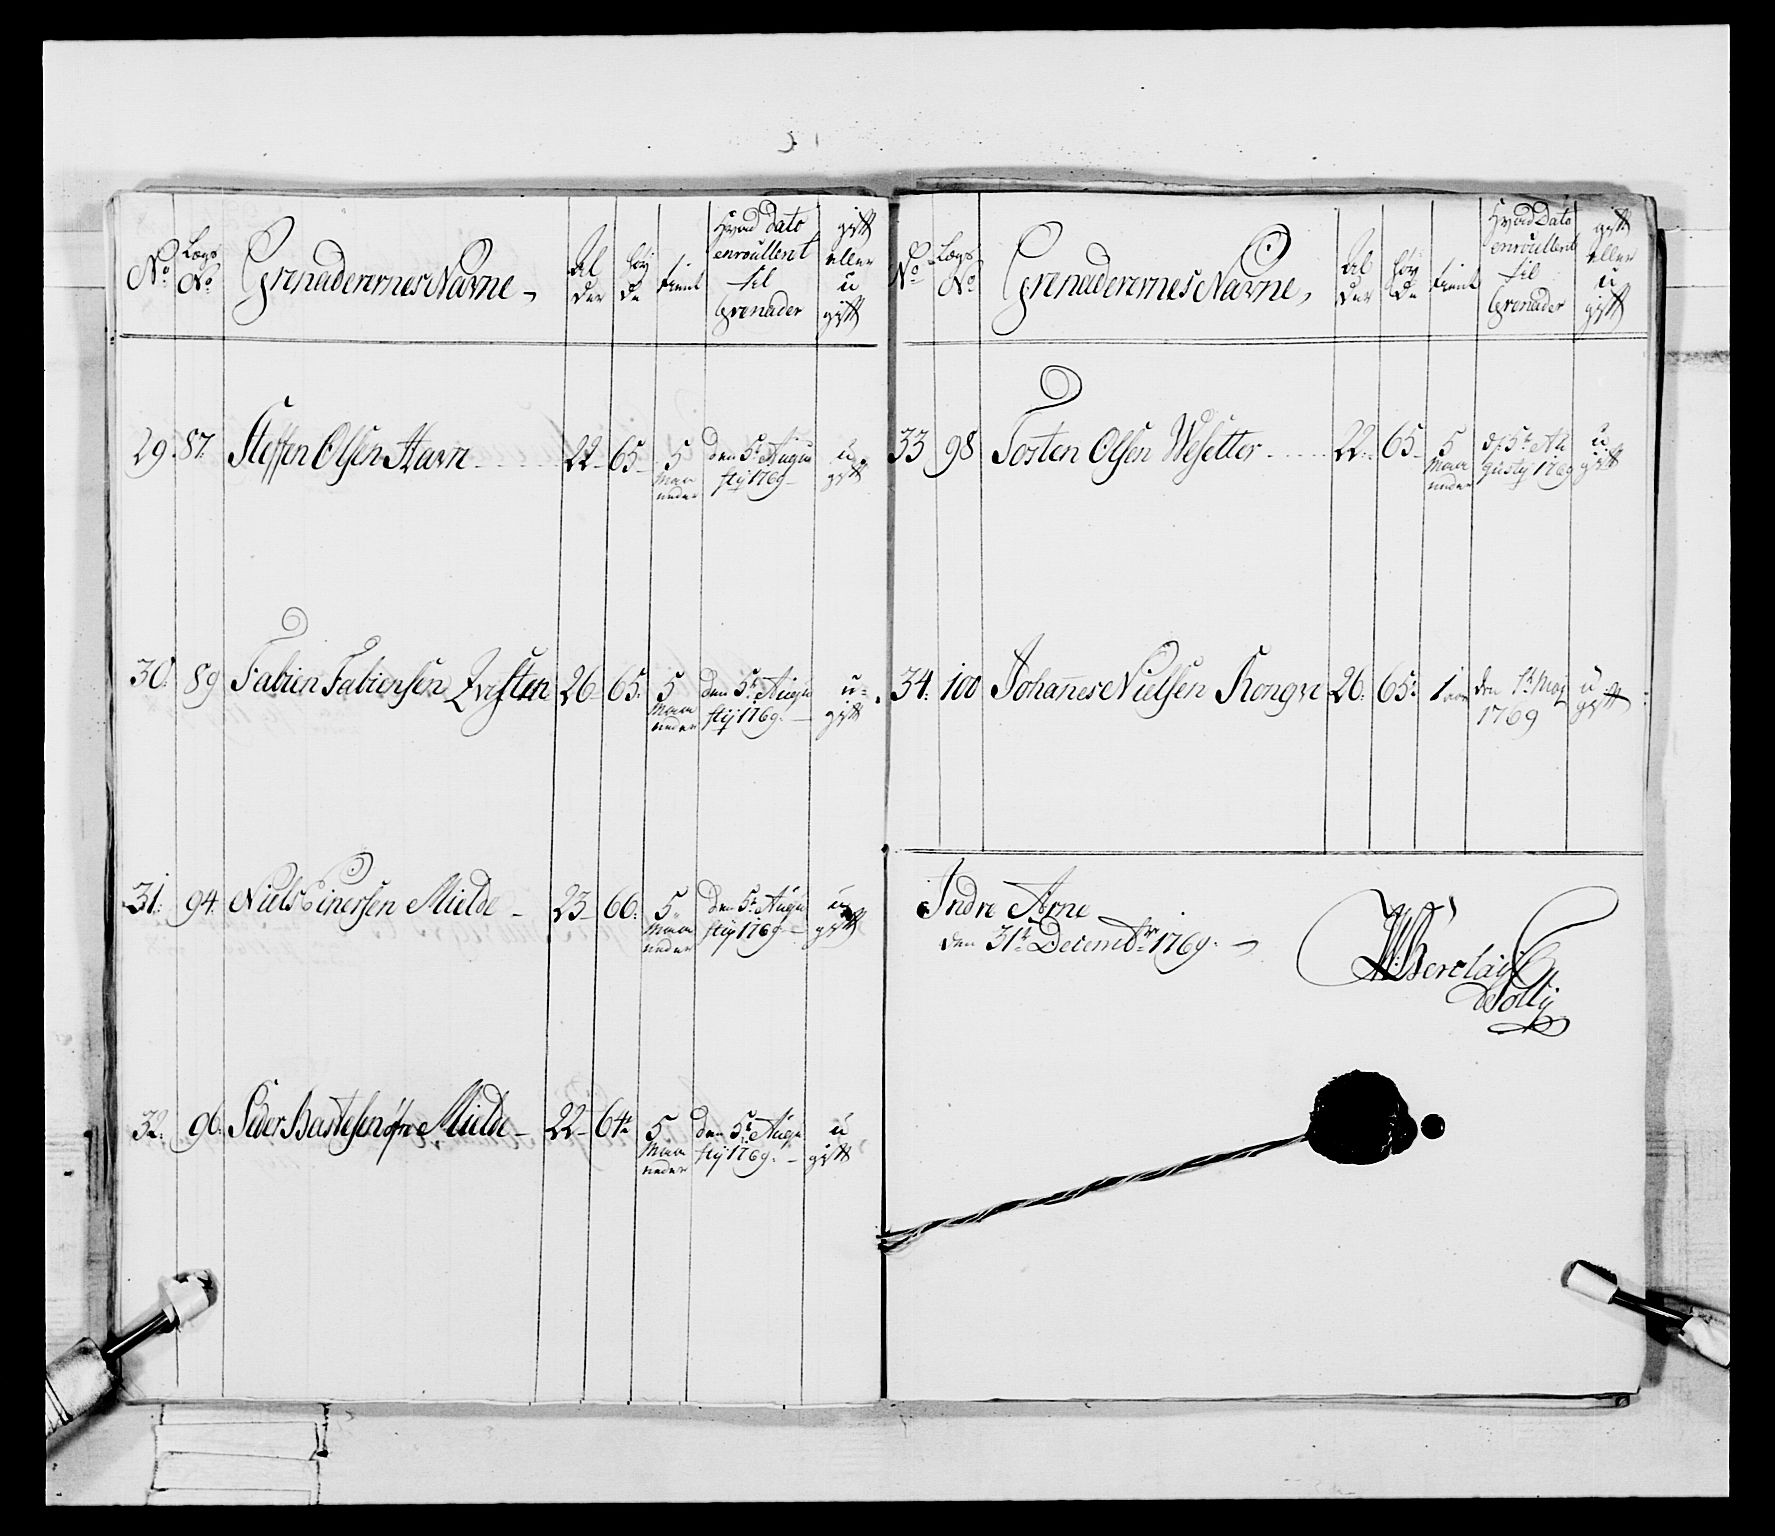 No Lægs No Grenaderernes Navne, Al der Høy de tient Hvad Dato enroullent til Grenader gift eller u gift
29. 87. Steffen Olsen Havn 22 65 5 Maaneder den 5t Augustij 1769 ugift
30. 89 Fabien Fabiensen Qvisten 26 65. 5 Maaneder den 5t Augustij 1769. ugift
31. 94. Niels Einersen Mielde 23 66. 5 Maaneder den 5t Augustij 1769 ugift
32. 96. Peder Bastesen øfre Mielde 22 64 5 Maaneder den 5t Augustij 1769. ugift
No Lægs No Grenaderernes Navne, Al der Høy de tient Hvad Dato enroullent til Grenader gift eller u gift
33 98 Tosten Olsen Wesetter 22. 65 5 Maaneder d 5t Augustij 1769 ugift
34. 100 Johannes Nielsen Kongve 26. 65. 1 aar den 1t Maij 1769 ugift
Indre Arne
den 31t Decembr 1769.